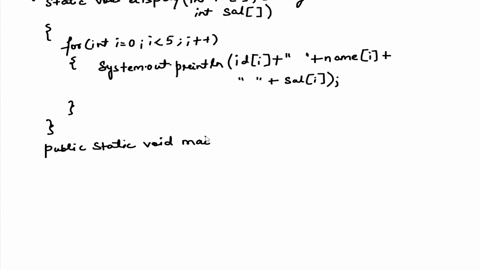 static void display(int
int sal[])
{
for(int i=0; i<5; i++)
{ System.out.println(id[i]+" "+name[i]+
" "+sal[i]);
}
}
public static void mai